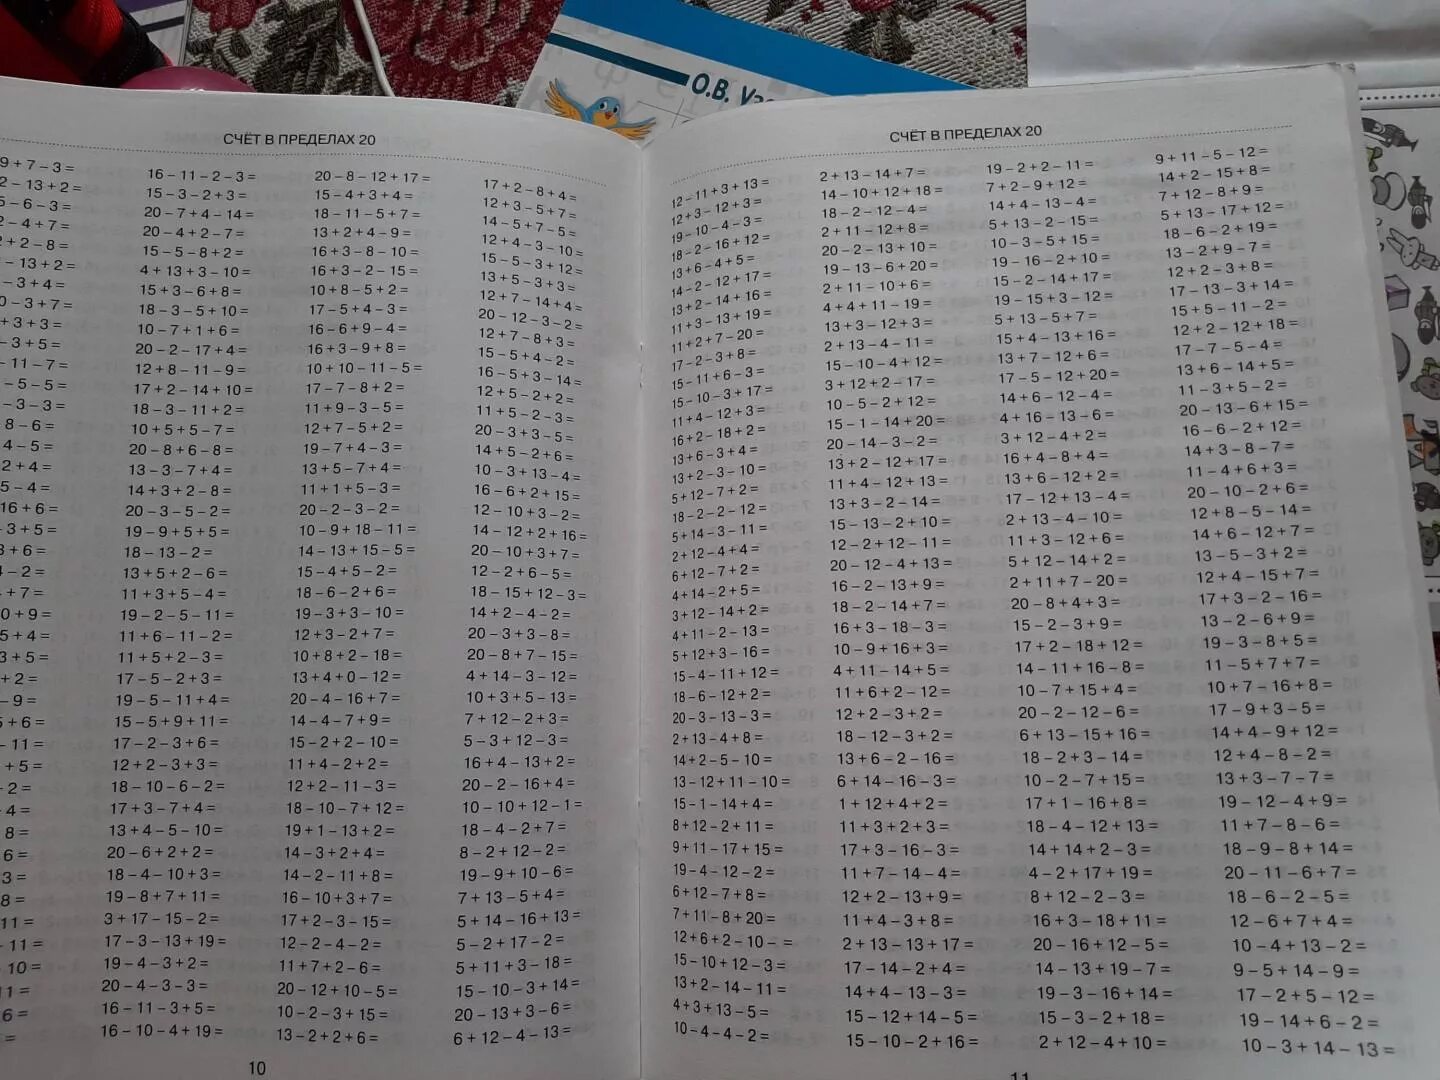 О.В. Уз
СЧЁТ В ПРЕДЕЛАХ 20
9 + 7 – 3 =
2 – 13 + 2 =
5 – 6 – 3 =
2 – 4 + 7 =
2 + 2 – 8 =
– 13 + 2 =
– 3 + 4 =
0 – 3 + 7 =
+ 3 + 3 =
– 3 + 5 =
– 11 – 7 =
– 5 – 5 =
– 3 – 3 =
8 – 6 =
4 – 5 =
2 + 4 =
5 – 4 =
16 + 6 =
3 + 5 =
3 + 6 =
– 2 =
+ 7 =
0 + 9 =
5 + 4 =
3 + 5 =
+ 2 =
– 9 =
5 + 6 =
– 11 =
+ 5 =
– 2 =
4 =
8 =
6 =
3 =
8 =
11 =
– 11 =
10 =
11 =
6 =
=
16 – 11 – 2 – 3 =
15 – 3 – 2 + 3 =
20 – 7 + 4 – 14 =
20 – 4 + 2 – 7 =
15 – 5 – 8 + 2 =
4 + 13 + 3 – 10 =
15 + 3 – 6 + 8 =
18 – 3 – 5 + 10 =
10 – 7 + 1 + 6 =
20 – 2 – 17 + 4 =
12 + 8 – 11 – 9 =
17 + 2 – 14 + 10 =
18 – 3 – 11 + 2 =
10 + 5 + 5 – 7 =
20 – 8 + 6 – 8 =
13 – 3 – 7 + 4 =
14 + 3 + 2 – 8 =
20 – 3 – 5 – 2 =
19 – 9 + 5 + 5 =
18 – 13 – 2 =
13 + 5 + 2 – 6 =
11 + 3 + 5 – 4 =
19 – 2 – 5 – 11 =
11 + 6 – 11 – 2 =
11 + 5 + 2 – 3 =
17 – 5 – 2 + 3 =
19 – 5 – 11 + 4 =
15 – 5 + 9 + 11 =
17 – 2 – 3 + 6 =
12 + 2 – 3 + 3 =
18 – 10 – 6 – 2 =
17 + 3 – 7 + 4 =
13 + 4 – 5 – 10 =
20 – 6 + 2 + 2 =
18 – 4 – 10 + 3 =
19 – 8 + 7 + 11 =
3 + 17 – 15 – 2 =
17 – 3 – 13 + 19 =
19 – 4 – 3 + 2 =
20 – 4 – 3 – 3 =
16 – 11 – 3 + 5 =
16 – 10 – 4 + 19 =
20 – 8 – 12 + 17 =
15 – 4 + 3 + 4 =
18 – 11 – 5 + 7 =
13 + 2 + 4 – 9 =
16 + 3 – 8 – 10 =
16 + 3 – 2 – 15 =
10 + 8 – 5 + 2 =
17 – 5 + 4 – 3 =
16 – 6 + 9 – 4 =
16 + 3 – 9 + 8 =
10 + 10 – 11 – 5 =
17 – 7 – 8 + 2 =
11 + 9 – 3 – 5 =
12 + 7 – 5 + 2 =
19 – 7 + 4 – 3 =
13 + 5 – 7 + 4 =
11 + 1 + 5 – 3 =
20 – 2 – 3 – 2 =
10 – 9 + 18 – 11 =
14 – 13 + 15 – 5 =
15 – 4 + 5 – 2 =
18 – 6 – 2 + 6 =
19 – 3 + 3 – 10 =
12 + 3 – 2 + 7 =
10 + 8 + 2 – 18 =
13 + 4 + 0 – 12 =
20 – 4 – 16 + 7 =
14 – 4 – 7 + 9 =
15 – 2 + 2 – 10 =
11 + 4 – 2 + 2 =
12 + 2 – 11 – 3 =
18 – 10 – 7 + 12 =
19 + 1 – 13 + 2 =
14 – 3 + 2 + 4 =
14 – 2 – 11 + 8 =
16 – 10 + 3 + 7 =
17 + 2 – 3 – 15 =
12 – 2 – 4 – 2 =
11 + 7 + 2 – 6 =
20 – 12 + 10 – 5 =
10 – 2 – 3 + 15 =
13 – 2 + 2 + 6 =
17 + 2 – 8 + 4 =
12 + 3 – 5 + 7 =
14 – 5 + 7 – 5 =
12 + 4 – 3 – 10 =
15 – 5 – 3 + 12 =
13 + 5 – 3 + 3 =
12 + 7 – 14 + 4 =
20 – 12 – 3 – 2 =
12 + 7 – 8 + 3 =
15 – 5 + 4 – 2 =
16 – 5 + 3 – 14 =
12 + 5 – 2 + 2 =
11 + 5 – 2 – 3 =
20 – 3 + 3 – 5 =
14 + 5 – 2 + 6 =
10 – 3 + 13 – 4 =
16 – 6 + 2 + 15 =
12 – 10 + 3 – 2 =
14 – 12 + 2 + 16 =
20 – 10 + 3 + 7 =
12 – 2 + 6 – 5 =
18 – 15 + 12 – 3 =
14 + 2 – 4 – 2 =
20 – 3 + 3 – 8 =
20 – 8 + 7 – 15 =
4 + 14 – 3 – 12 =
10 + 3 + 5 – 13 =
7 + 12 – 2 + 3 =
5 – 3 + 12 – 3 =
16 + 4 – 13 + 2 =
20 – 2 – 16 + 4 =
10 – 10 + 12 – 1 =
18 – 4 – 2 + 7 =
8 – 2 + 12 – 2 =
19 – 9 + 10 – 6 =
7 + 13 – 5 + 4 =
5 + 14 – 16 + 13 =
5 – 2 + 17 – 2 =
5 + 11 + 3 – 18 =
15 – 10 – 3 + 14 =
20 – 13 + 3 – 6 =
6 + 12 – 4 – 13 =
10
СЧЁТ В ПРЕДЕЛАХ 20
12 – 11 + 3 + 13 =
12 + 3 – 12 + 3 =
19 – 10 – 4 – 3 =
18 – 2 – 16 + 12 =
13 + 6 – 4 + 5 =
14 – 2 – 12 + 17 =
13 + 2 – 14 + 16 =
11 + 3 – 13 + 19 =
11 + 2 + 7 – 20 =
17 – 2 – 3 + 8 =
15 – 11 + 6 – 3 =
15 – 10 – 3 + 17 =
11 + 4 – 12 + 3 =
16 + 2 – 18 + 2 =
13 + 6 – 3 + 4 =
13 + 2 – 3 – 10 =
5 + 12 – 7 + 2 =
18 – 2 – 2 – 12 =
5 + 14 – 3 – 11 =
2 + 12 – 4 + 4 =
6 + 12 – 7 + 2 =
4 + 14 – 2 + 5 =
3 + 12 – 14 + 2 =
4 + 11 – 2 – 13 =
5 + 12 + 3 – 16 =
15 – 4 – 11 + 12 =
18 – 6 – 12 + 2 =
20 – 3 – 13 – 3 =
2 + 13 – 4 + 8 =
14 + 2 – 5 – 10 =
13 – 12 + 11 – 10 =
15 – 1 – 14 + 4 =
8 + 12 – 2 + 11 =
9 + 11 – 17 + 15 =
19 – 4 – 12 – 2 =
6 + 12 – 7 + 8 =
7 + 11 – 8 + 20 =
12 + 6 + 2 – 10 – =
15 – 10 + 12 – 3 =
13 + 2 – 14 – 11 =
4 + 3 + 13 – 5 =
10 – 4 – 4 – 2 =
2 + 13 – 14 + 7 =
14 – 10 + 12 + 18 =
18 – 2 – 12 – 4 =
2 + 11 – 12 + 8 =
20 – 2 – 13 + 10 =
19 – 13 – 6 + 20 =
2 + 11 – 10 + 6 =
4 + 4 + 11 – 19 =
13 + 3 – 12 + 3 =
2 + 13 – 4 – 11 =
15 – 10 – 4 + 12 =
3 + 12 + 2 – 17 =
10 – 5 – 2 + 12 =
15 – 1 – 14 + 20 =
20 – 14 – 3 – 2 =
13 + 2 – 12 + 17 =
11 + 4 – 12 + 13 =
13 + 3 – 2 – 14 =
15 – 13 – 2 + 10 =
12 – 2 + 12 – 11 =
20 – 12 – 4 + 13 =
16 – 2 – 13 + 9 =
18 – 2 – 14 + 7 =
16 + 3 – 18 – 3 =
10 – 9 + 16 + 3 =
4 + 11 – 14 + 5 =
11 + 6 + 2 – 12 =
12 + 2 – 3 + 2 =
18 – 12 – 3 + 2 =
13 + 6 – 2 – 16 =
6 + 14 – 16 – 3 =
1 + 12 + 4 + 2 =
11 + 3 + 2 + 3 =
17 + 3 – 16 – 3 =
11 + 7 – 14 – 4 =
12 + 2 – 13 + 9 =
11 + 4 – 3 + 8 =
2 + 13 – 13 + 17 =
17 – 14 – 2 + 4 =
14 + 4 – 13 – 3 =
15 – 12 + 14 – 5 =
15 – 10 – 2 + 16 =
19 – 2 + 2 – 11 =
7 + 2 – 9 + 12 =
14 + 4 – 13 – 4 =
5 + 13 – 2 – 15 =
10 – 3 – 5 + 15 =
19 – 16 – 2 + 10 =
15 – 2 – 14 + 17 =
19 – 15 + 3 – 12 =
5 + 13 – 5 + 7 =
15 + 4 – 13 + 16 =
13 + 7 – 12 + 6 =
17 – 5 – 12 + 20 =
14 + 6 – 12 – 4 =
4 + 16 – 13 – 6 =
3 + 12 – 4 + 2 =
16 + 4 – 8 + 4 =
13 + 6 – 12 + 2 =
17 – 12 + 13 – 4 =
2 + 13 – 4 – 10 =
11 + 3 – 12 + 6 =
5 + 12 – 14 + 2 =
2 + 11 + 7 – 20 =
20 – 8 + 4 + 3 =
15 – 2 – 3 + 9 =
17 + 2 – 18 + 12 =
14 – 11 + 16 – 8 =
10 – 7 + 15 + 4 =
20 – 2 – 12 – 6 =
6 + 13 – 15 + 16 =
18 – 2 + 3 – 14 =
10 – 2 – 7 + 15 =
17 + 1 – 16 + 8 =
18 – 4 – 12 + 13 =
14 + 14 + 2 – 3 =
4 – 2 + 17 + 19 =
8 + 12 – 2 – 3 =
16 + 3 – 18 + 11 =
20 – 16 + 12 – 5 =
14 – 13 + 19 – 7 =
19 – 3 – 16 + 14 =
15 – 3 – 2 + 18 =
2 + 12 – 4 + 10 =
9 + 11 – 5 – 12 =
14 + 2 – 15 + 8 =
7 + 12 – 8 + 9 =
5 + 13 – 17 + 12 =
18 – 6 – 2 + 19 =
13 – 2 + 9 – 7 =
12 + 2 – 3 + 8 =
17 – 13 – 3 + 14 =
15 + 5 – 11 – 2 =
12 + 2 – 12 + 18 =
17 – 7 – 5 – 4 =
13 + 6 – 14 + 5 =
11 – 3 + 5 – 2 =
20 – 13 – 6 + 15 =
16 – 6 – 2 + 12 =
14 + 3 – 8 – 7 =
11 – 4 + 6 + 3 =
20 – 10 – 2 + 6 =
12 + 8 – 5 – 14 =
14 + 6 – 12 + 7 =
13 – 5 – 3 + 2 =
12 + 4 – 15 + 7 =
17 + 3 – 2 – 16 =
13 – 2 – 6 + 9 =
19 – 3 – 8 + 5 =
11 – 5 + 7 + 7 =
10 + 7 – 16 + 8 =
17 – 9 + 3 – 5 =
14 + 4 – 9 + 12 =
12 + 4 – 8 – 2 =
13 + 3 – 7 – 7 =
19 – 12 – 4 + 9 =
11 + 7 – 8 – 6 =
18 – 9 – 8 + 14 =
20 – 11 – 6 + 7 =
18 – 6 – 2 – 5 =
12 – 6 + 7 + 4 =
10 – 4 + 13 – 2 =
9 – 5 + 14 – 9 =
17 – 2 + 5 – 12 =
19 – 14 + 6 – 2 =
10 – 3 + 14 – 13 =
11